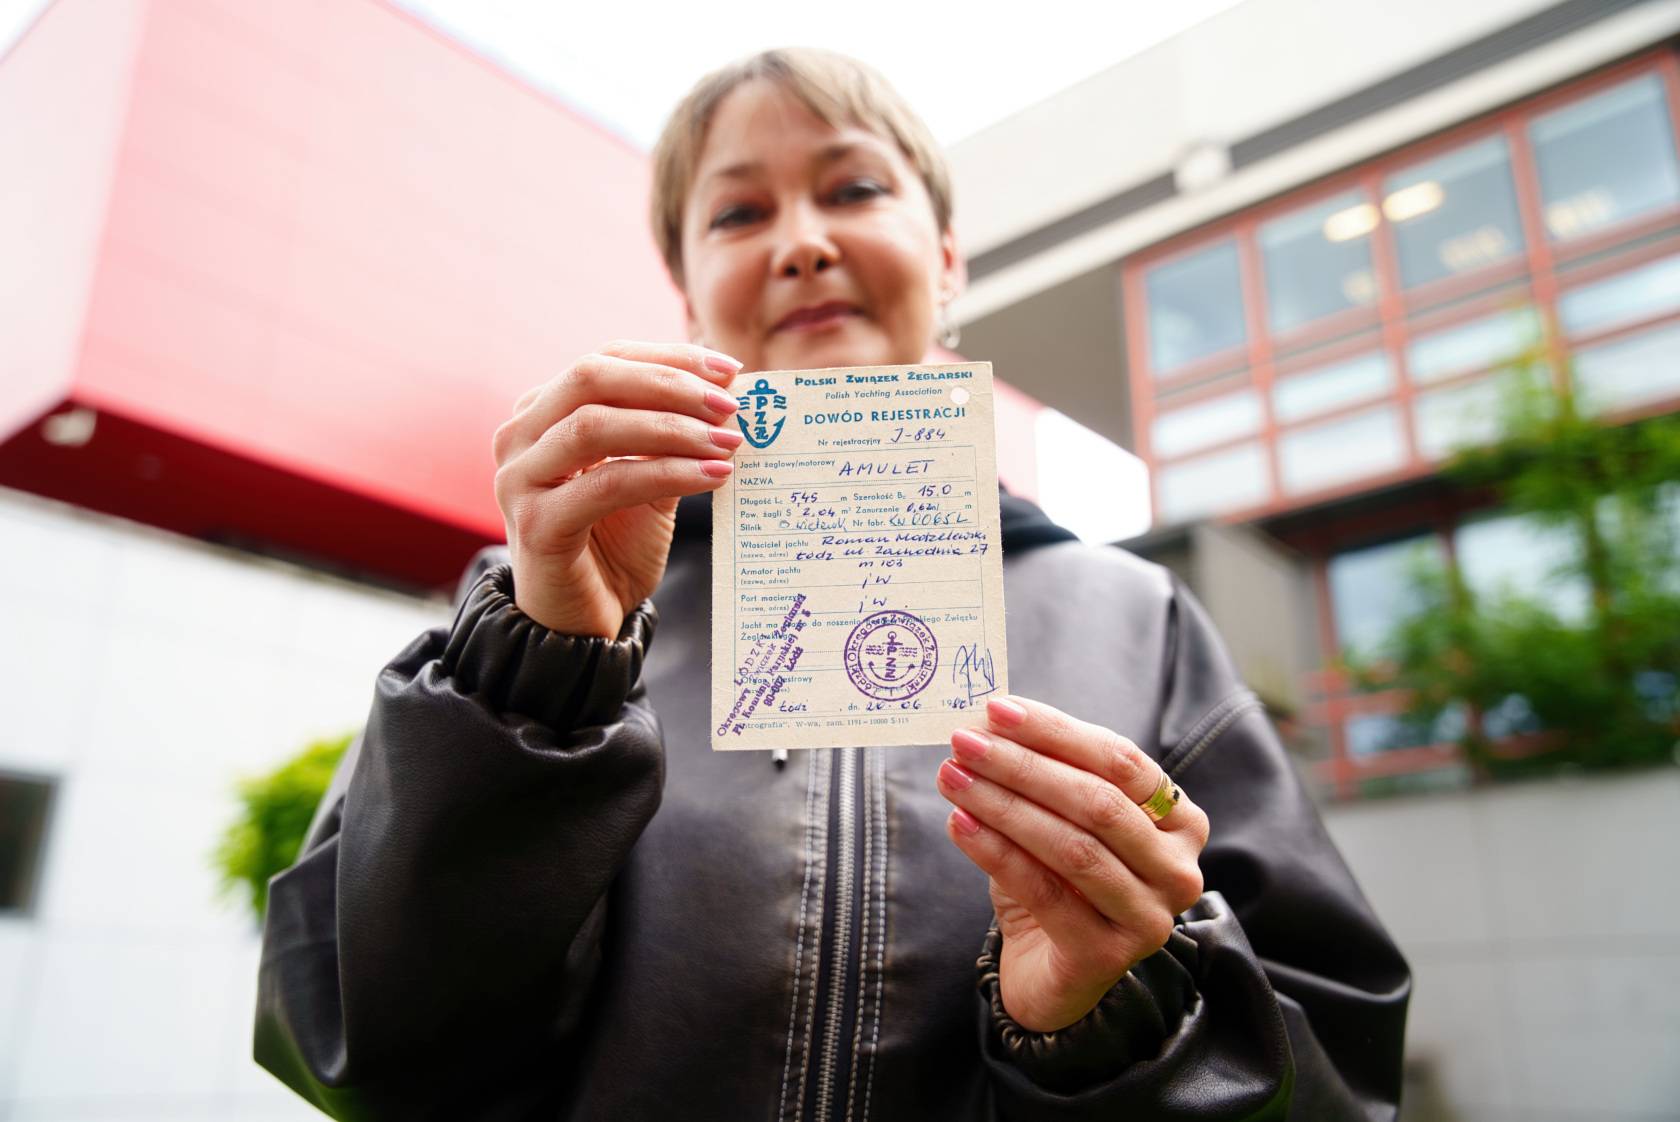 POLSKI ZWIĄZEK ŻEGLARSKI
Polish Yachting Association
PZŻ
DOWÓD REJESTRACJI
Nr rejestracyjny J-884
Jacht żaglowy/motorowy AMULET
NAZWA
Długość L: 5,45 m Szerokość B: 15.0 m
Pow. żagli S 2.04 m² Zanurzenie m
Silnik Nr fabr. KN 0065L
Właściciel jachtu Roman Modzelewski
(nazwa, adres) Łódź ul. Zachodnia 27
m 103
Armator jachtu
(nazwa, adres) j w
Port macierzysty
(nazwa, adres) j w.
Jacht ma prawo do noszenia Związku
Żeglarskiego
Okręgowy Związek Żeglarski
Organ rejestrowy
Łódź, dn. 20. 06 19
W-wa, zam. 1191 - 10000 S-115